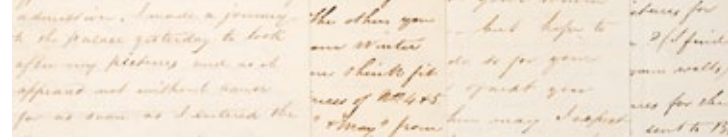 admission. I made a journey
to the palace yesterday to look
after my pictures and as it
appeared not without cause
for as soon as I entered the
the other you
one Winter
me think fit
nces of No 4 & 5
" & May" from
but hope to
do so for your
you
him may I expect
pictures for
? (I find
own walls,
for the
sent to